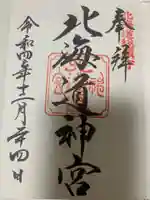 奉拝
北海道神宮
令和四年十二月廿四日